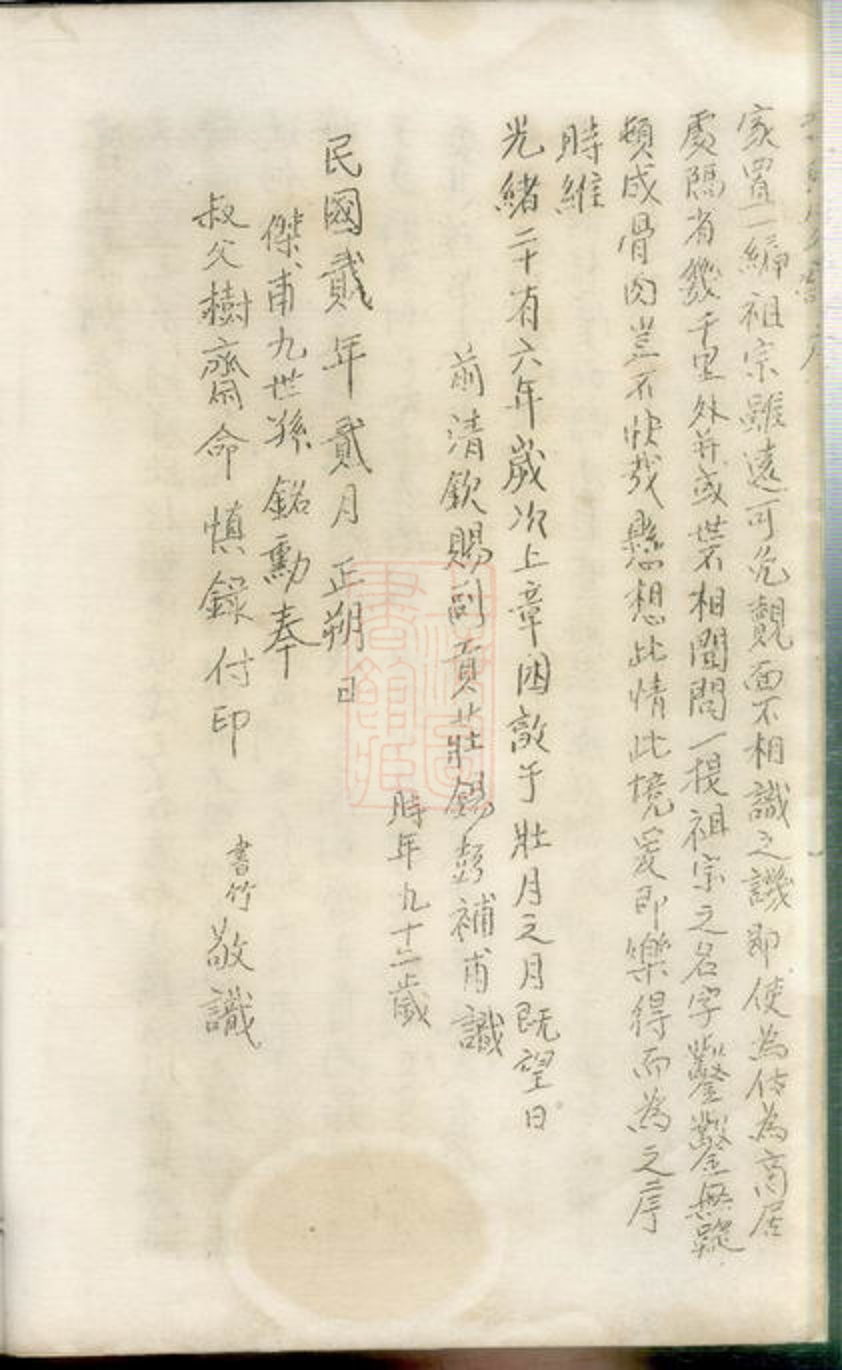 家置一編祖宗雖遠可免覿面不相識之譏即使為仕為商居
處隔省幾千里外并或世不相聞問一提祖宗之名字鑿鑿無蹤
頓成骨肉豈不快哉懸想此情此境爰即樂得而為之序
時維
光緒二十有六年歲次上章困敦于壯月之月既望日
前清欽賜副貢莊錫彭補甫識
時年九十二歲
民國貳年貳月正朔日
傑甫九世孫銘勳奉
叔父樹齋命慎錄付印
書竹敬識
圖書館藏